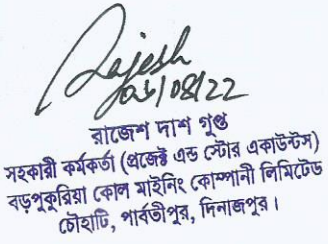 Rajesh
03/08/22
রাজেশ দাশ গুপ্ত
সহকারী কর্মকর্তা (প্রজেক্ট এন্ড স্টোর একাউন্টস)
বড়পুকুরিয়া কোল মাইনিং কোম্পানী লিমিটেড
চৌহাটি, পার্বতীপুর, দিনাজপুর।